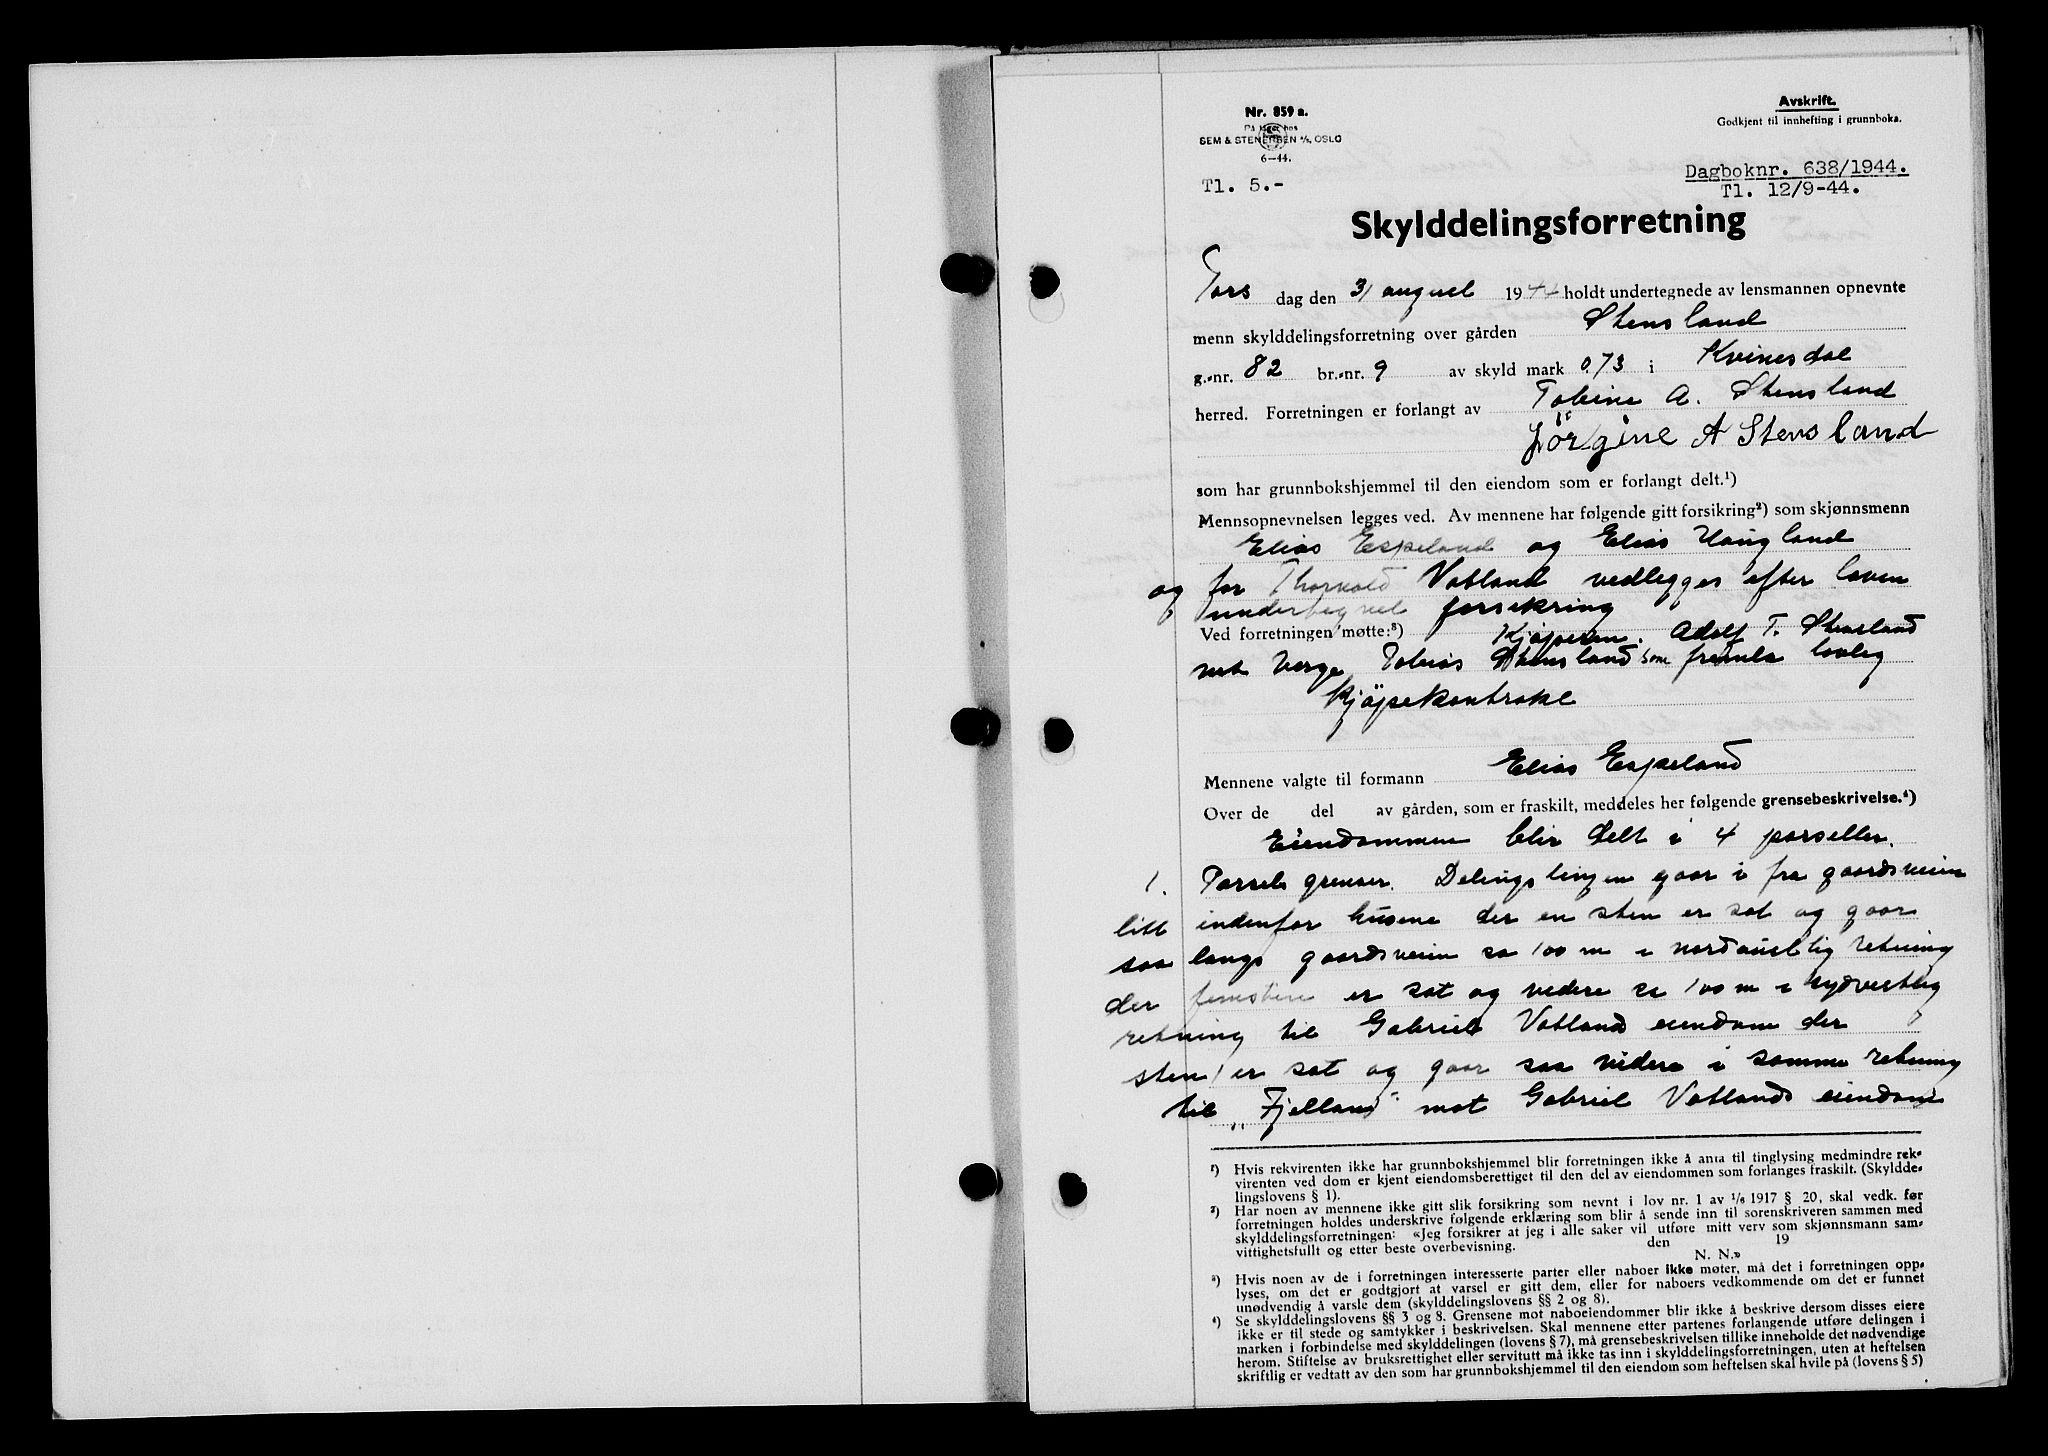 Nr. 859 a.
På lager hos
SEM & STENERSEN A/S, OSLO
6—44.
Tl. 5.-
Avskrift.
Godkjent til innhefting i grunnboka.
Dagboknr. 638/1944.
Tl. 12/9-44.
Skylddelingsforretning
Tors dag den 31 august 1944 holdt undertegnede av lensmannen opnevnte
menn skylddelingsforretning over gården Stensland
g.-nr. 82 br.-nr. 9 av skyld mark 0,73 i Kvinesdal
herred. Forretningen er forlangt av Tobine A. Stensland
Jörgine A Stensland
som har grunnbokshjemmel til den eiendom som er forlangt delt.¹)
Mennsopnevnelsen legges ved. Av mennene har følgende gitt forsikring²) som skjønnsmenn
Elias Espeland og Elias Haugland
og for Thorvald Vatland vedlegges efter loven
forsikring
Ved forretningen møtte:³) Kjøperen. Adolf T. Stensland
Verge Tobias Stensland som lovlig
Kjøpekontrakt
Mennene valgte til formann Elias Espeland
Over de del av gården, som er fraskilt, meddeles her følgende grensebeskrivelse.⁴)
Eiendommen blir delt i 4 parseller.
1. Parsels grenser. Delings linjen gaar i fra gaardsveien
litt indenfor husene der en sten er sat og gaar
saa langs gaardsveien ca 100 m i nordaustlig retning
der er sat og videre ca 100 m i sydvestlig
retning til Gabriel Vatlands eiendom der
sten er sat og gaar saa videre i samme retning
til „Fjelland" mot Gabriel Vatlands eiendom
¹) Hvis rekvirenten ikke har grunnbokshjemmel blir forretningen ikke å anta til tinglysing medmindre rek-
virenten ved dom er kjent eiendomsberettiget til den del av eiendommen som forlanges fraskilt. (Skyldde-
lingslovens § 1).
²) Har noen av mennene ikke gitt slik forsikring som nevnt i lov nr. 1 av 1/6 1917 § 20, skal vedk. før
forretningen holdes underskrive følgende erklæring som blir å sende inn til sorenskriveren sammen med
skylddelingsforretningen: «Jeg forsikrer at jeg i alle saker vil utføre mitt verv som skjønnsmann sam-
vittighetsfullt og etter beste overbevisning. den 19
N. N.»
³) Hvis noen av de i forretningen interesserte parter eller naboer ikke møter, må det i forretningen opp-
lyses, om det er godtgjort at varsel er gitt dem, eller for naboers vedkommende om det er funnet
unødvendig å varsle dem (skylddelingslovens §§ 2 og 8).
⁴) Se skylddelingslovens §§ 3 og 8. Grensene mot naboeiendommer blir ikke å beskrive dersom disses eiere
ikke er til stede og samtykker i beskrivelsen. Skal mennene etter partenes forlangende utføre delingen i
marken i forbindelse med skylddelingen (lovens § 7), må grensebeskrivelsen tillike inneholde det nødvendige
herom. Stiftelse av bruksrettighet eller servitutt må ikke tas inn i skylddelingsforretningen, uten at heftelsen
skriftlig er vedtatt av den som har grunnbokshjemmel til den eiendom som heftelsen skal hvile på (lovens § 5)